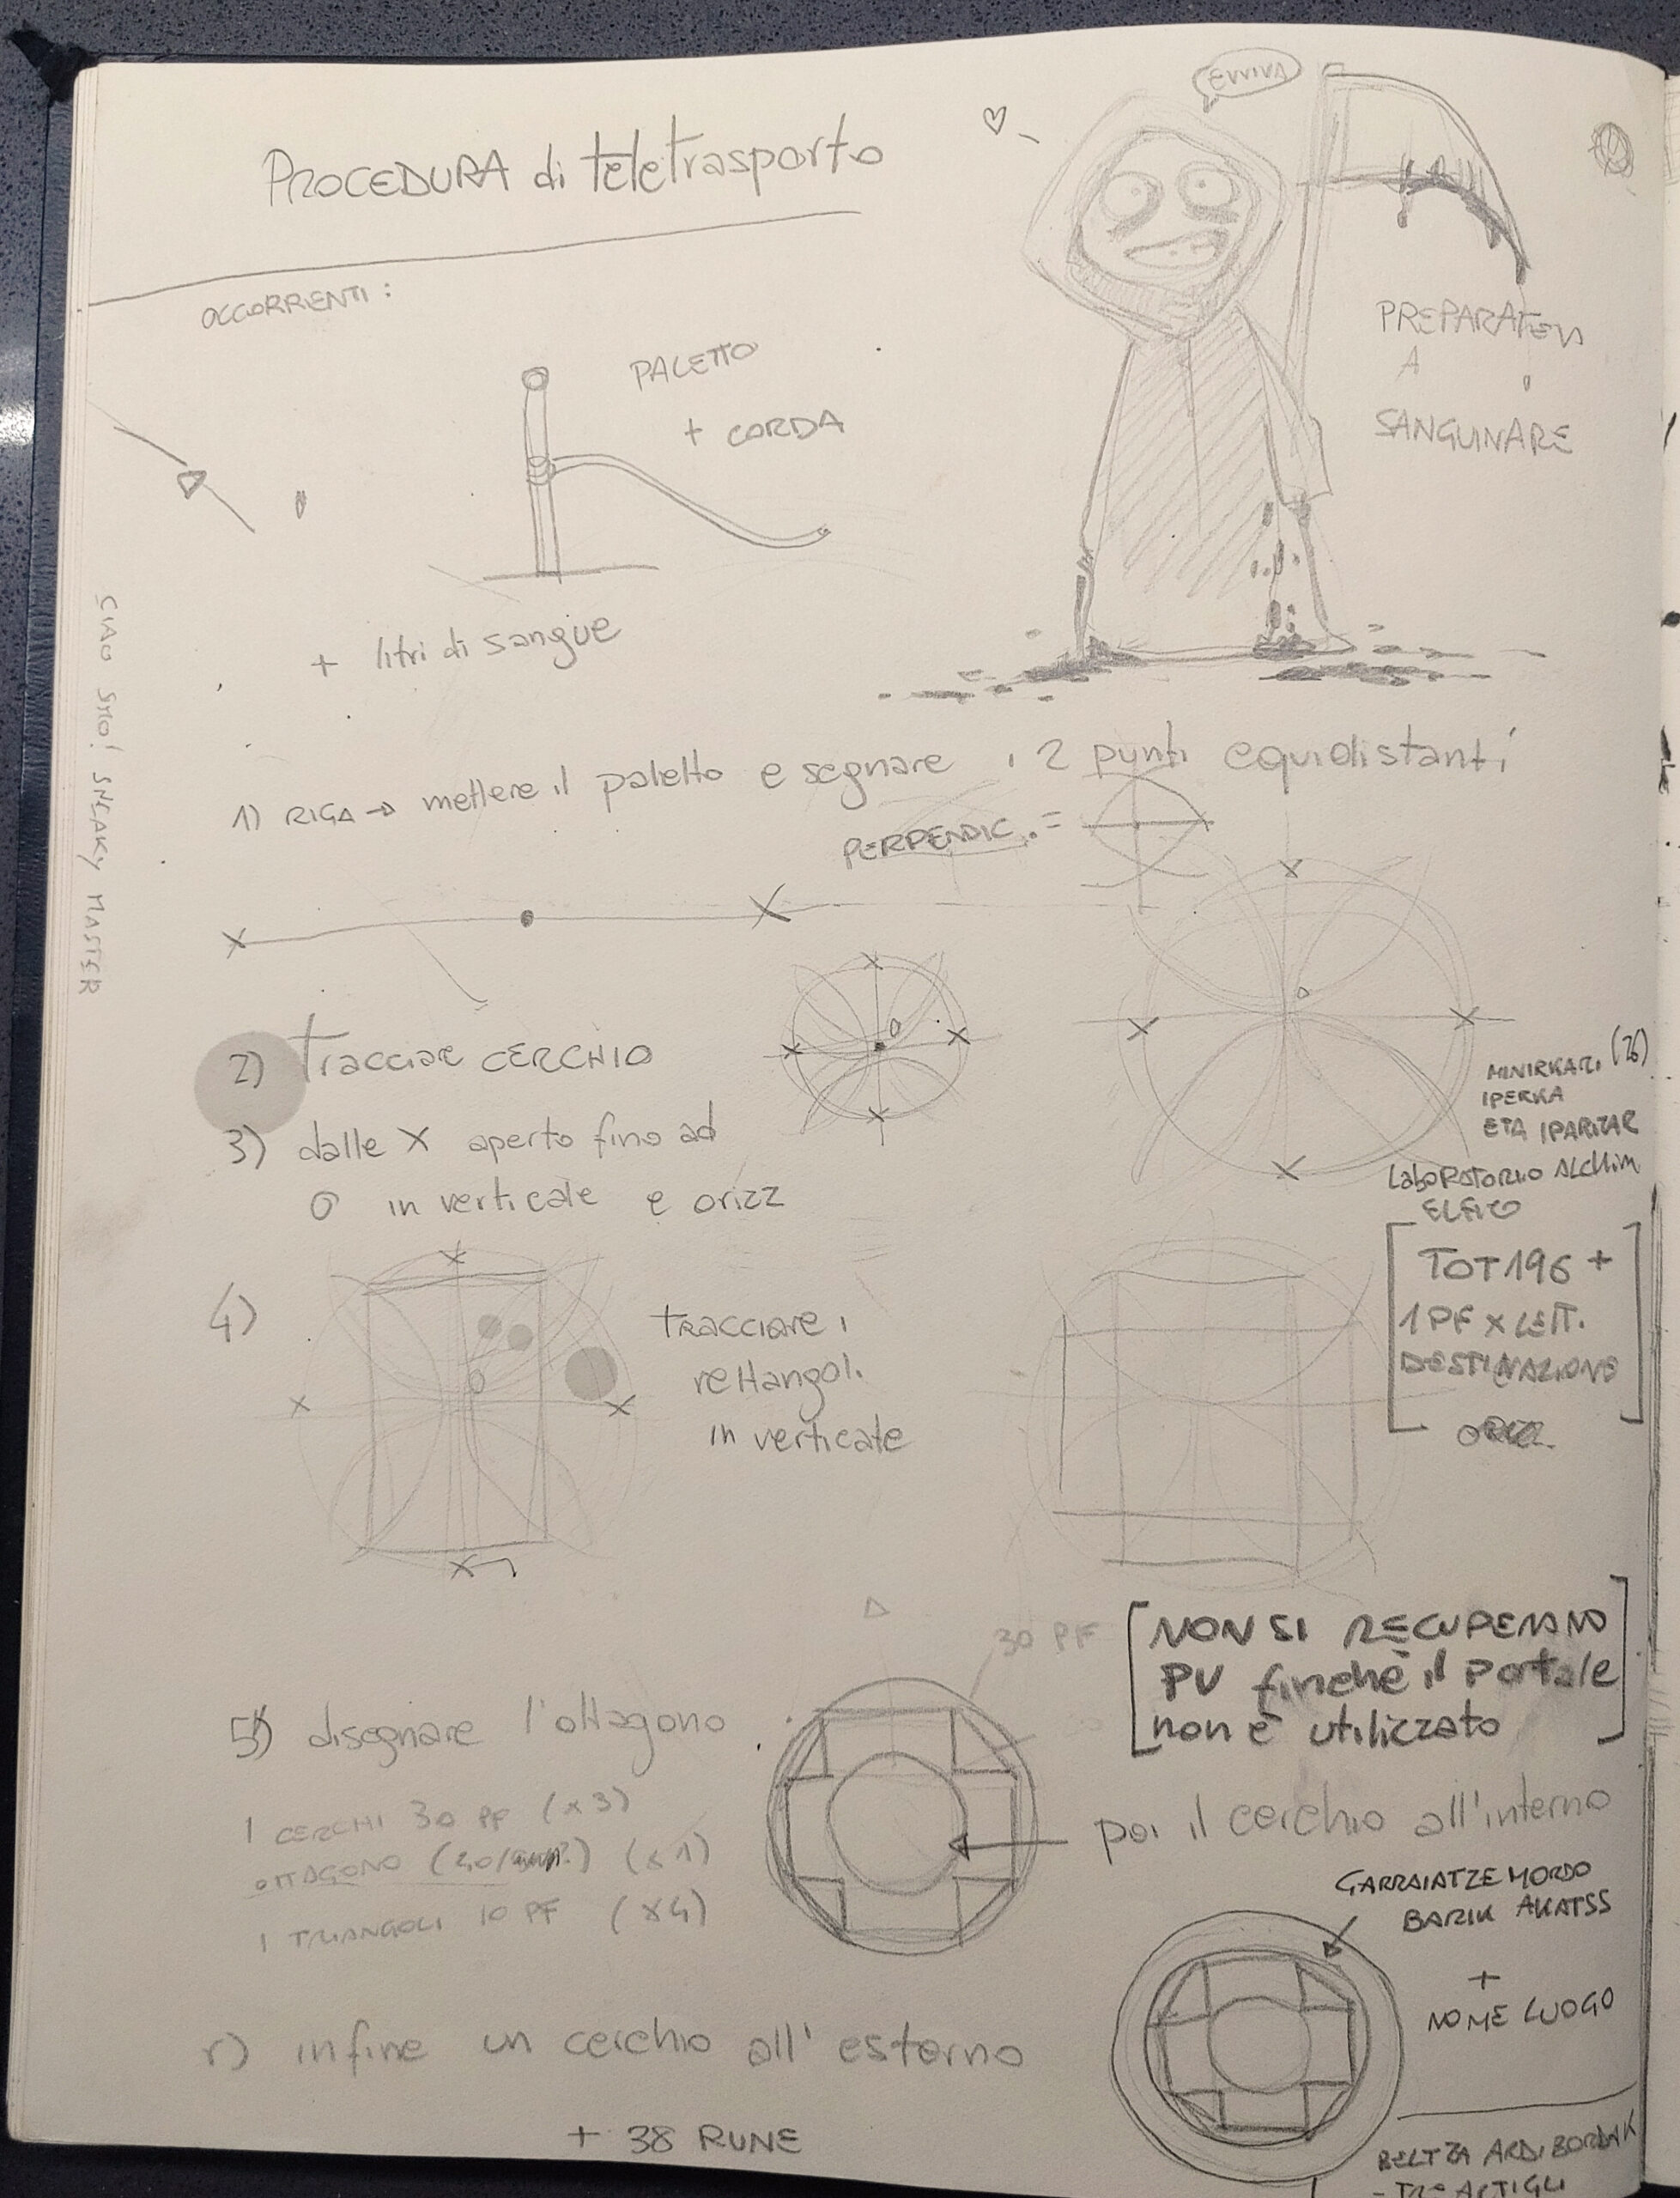 PROCEDURA di teletrasporto
EVVIVA
OCCORRENTI:
PALETTO
+ CORDA
PREPARATEVI
A
SANGUINARE
+ litri di sangue
CIAO SMO! SNEAKY MASTER
1) RIGA → mettere il paletto e segnare i 2 punti equidistanti
PERPENDIC. =
2) tracciare CERCHIO
3) dalle X aperto fino ad
O in verticale e orizz
MINIRKARI (26)
IPERKA
ETA IPARITAR
LABORATORIO ALCHIM
ELFICO
4)
TRACCIARE i
rettangoli
in verticale
[TOT 196 +
1 PF x LETT.
DESTINAZIONE]
30 PF
[NON SI RECUPERANO
PV finchè il portale
non è utilizzato]
5) disegnare l'ottagono
I CERCHI 30 PF (x3)
OTTAGONO (x1)
I TRIANGOLI 10 PF (x4)
poi il cerchio all'interno
GARRAIATZE MORDO
BARIK AKATSS
+
NOME LUOGO
r) infine un cerchio all'esterno
+ 38 RUNE
BELTZA ARDI BORDAK
- TRE ARTIGLI